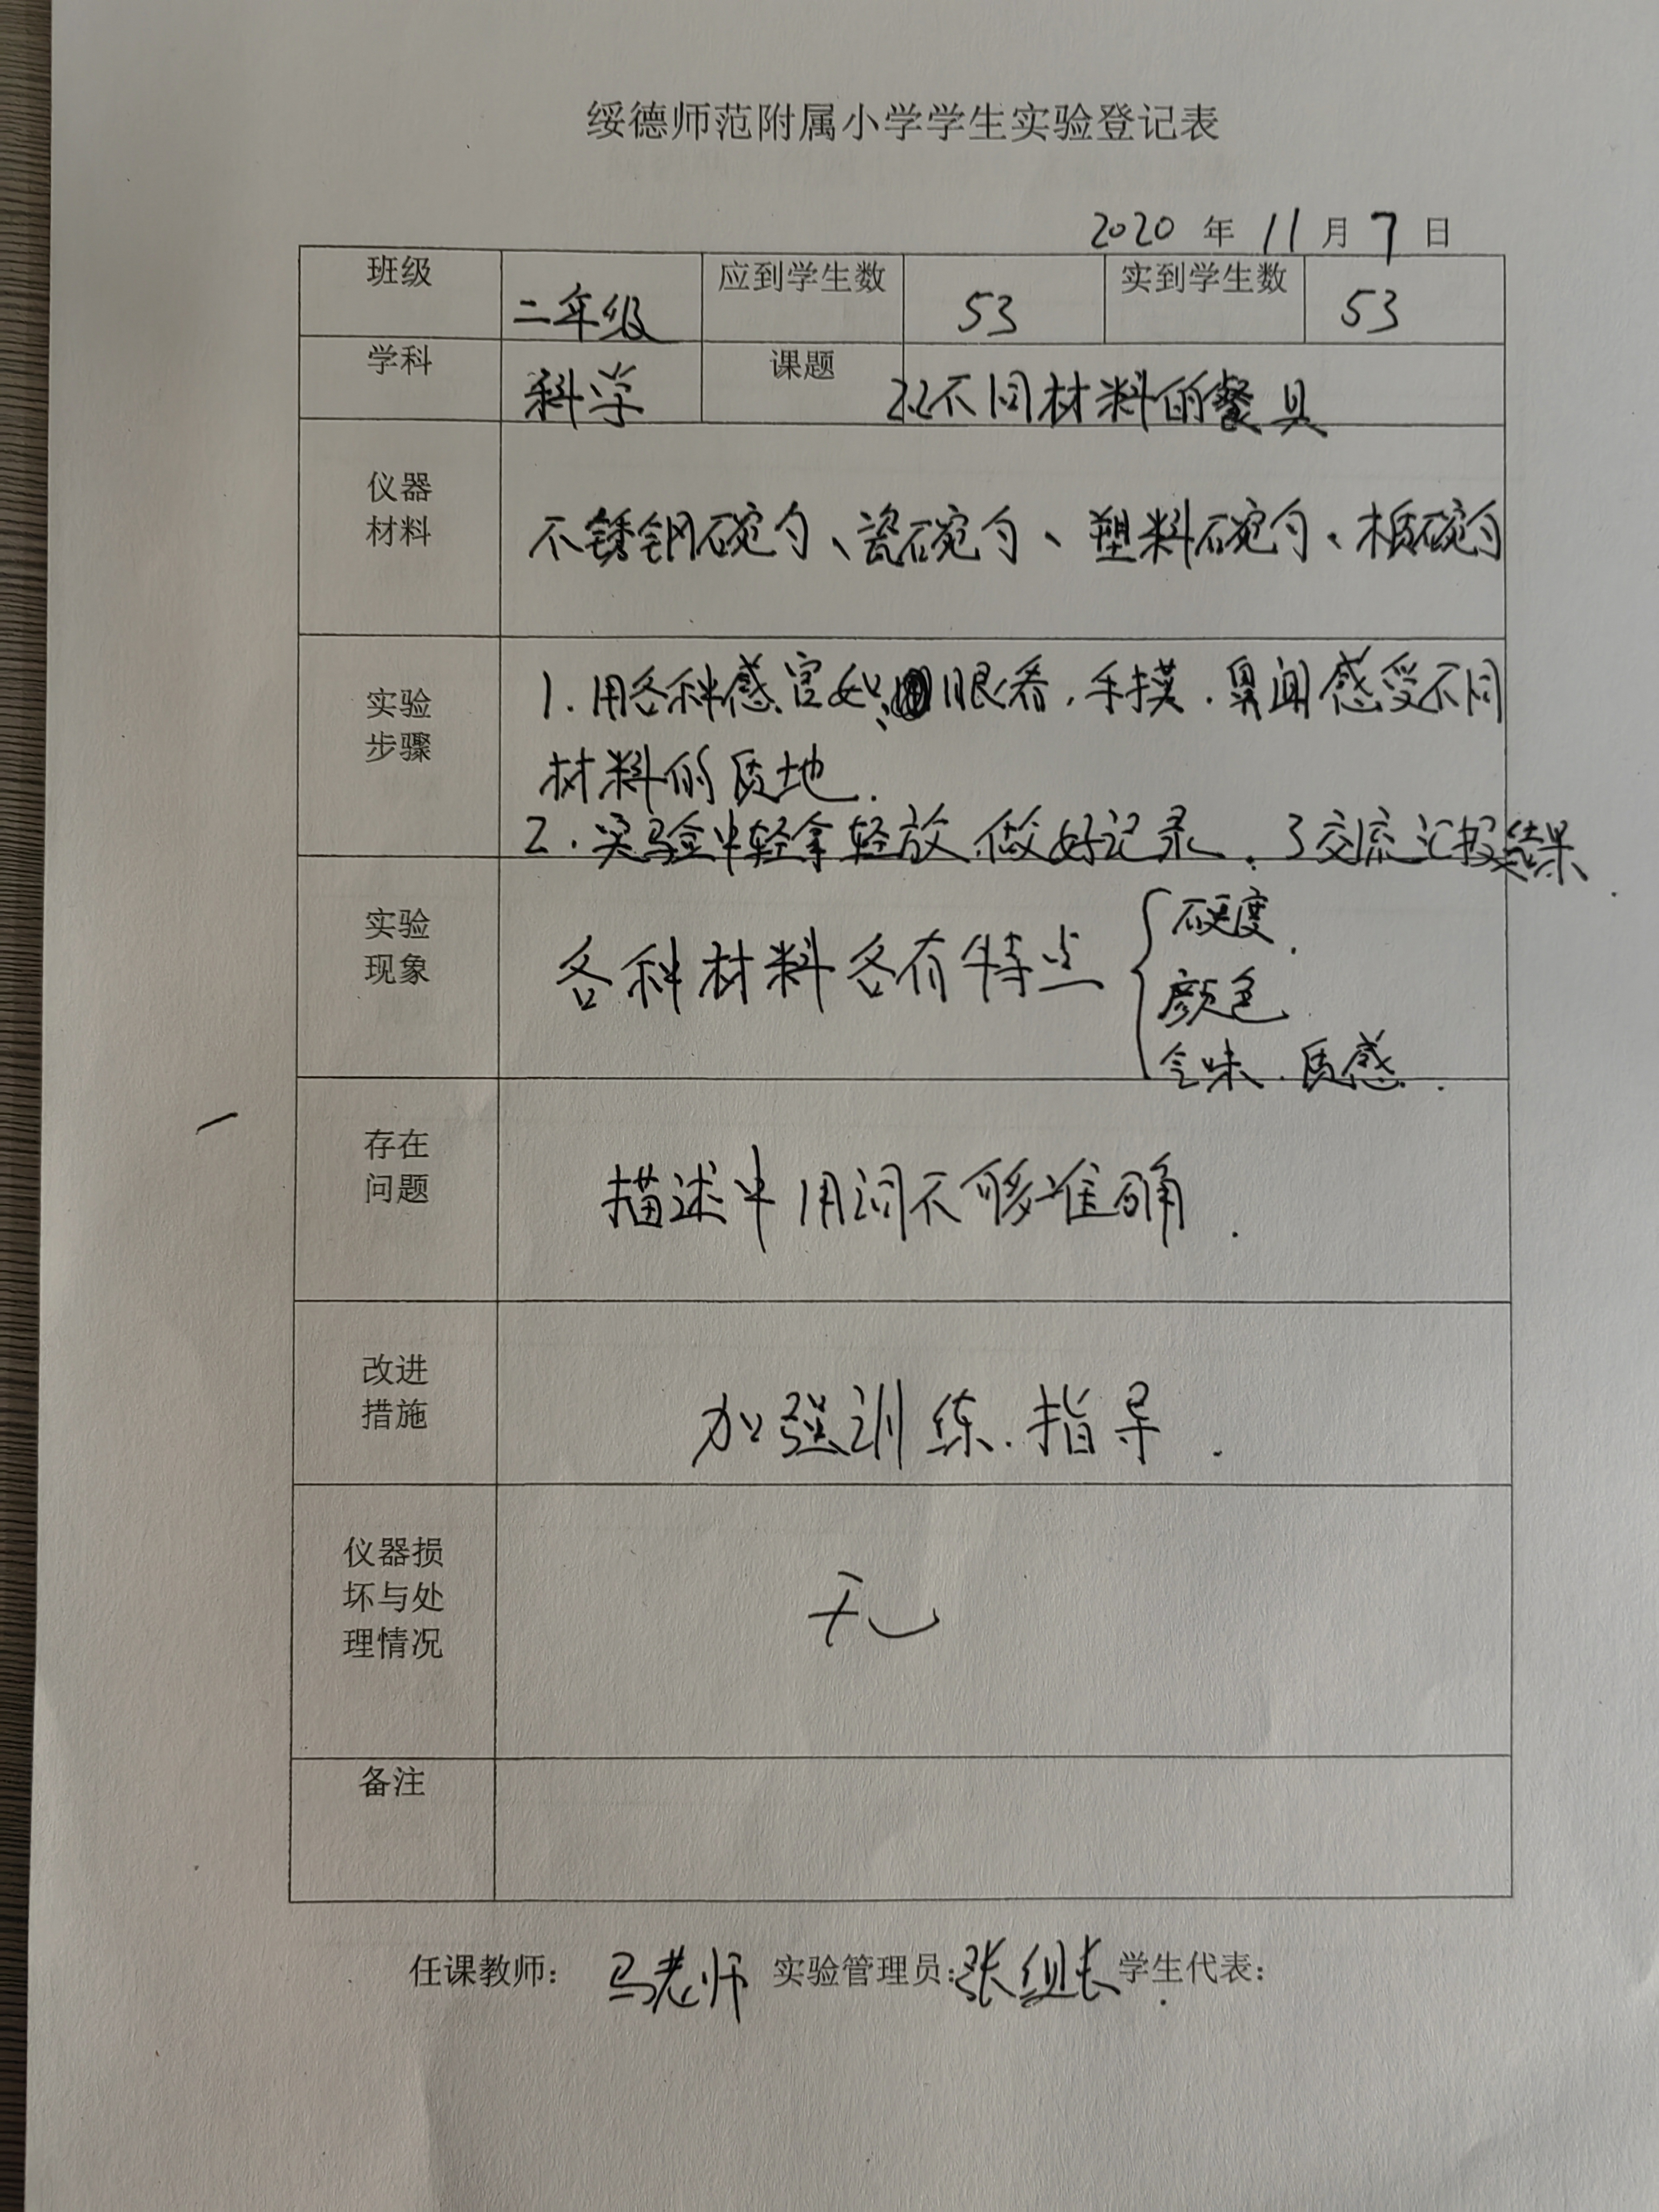 绥德师范附属小学学生实验登记表
2020 年 11 月 7 日
班级 二年级 应到学生数 53 实到学生数 53
学科 科学 课题 2.2不同材料的餐具
仪器
材料
不锈钢碗勺、瓷碗勺、塑料碗勺、木碗勺
实验
步骤
1.用各种感官如:眼看.手摸.鼻闻感受不同
材料的质地.
2.实验中轻拿轻放.做好记录.3交流汇报结果.
实验
现象
各种材料各有特点
硬度.
颜色
气味.质感.
存在
问题
描述中用词不够准确.
改进
措施
加强训练.指导.
仪器损
坏与处
理情况
无
备注
任课教师: 马老师 实验管理员:张组长 学生代表: